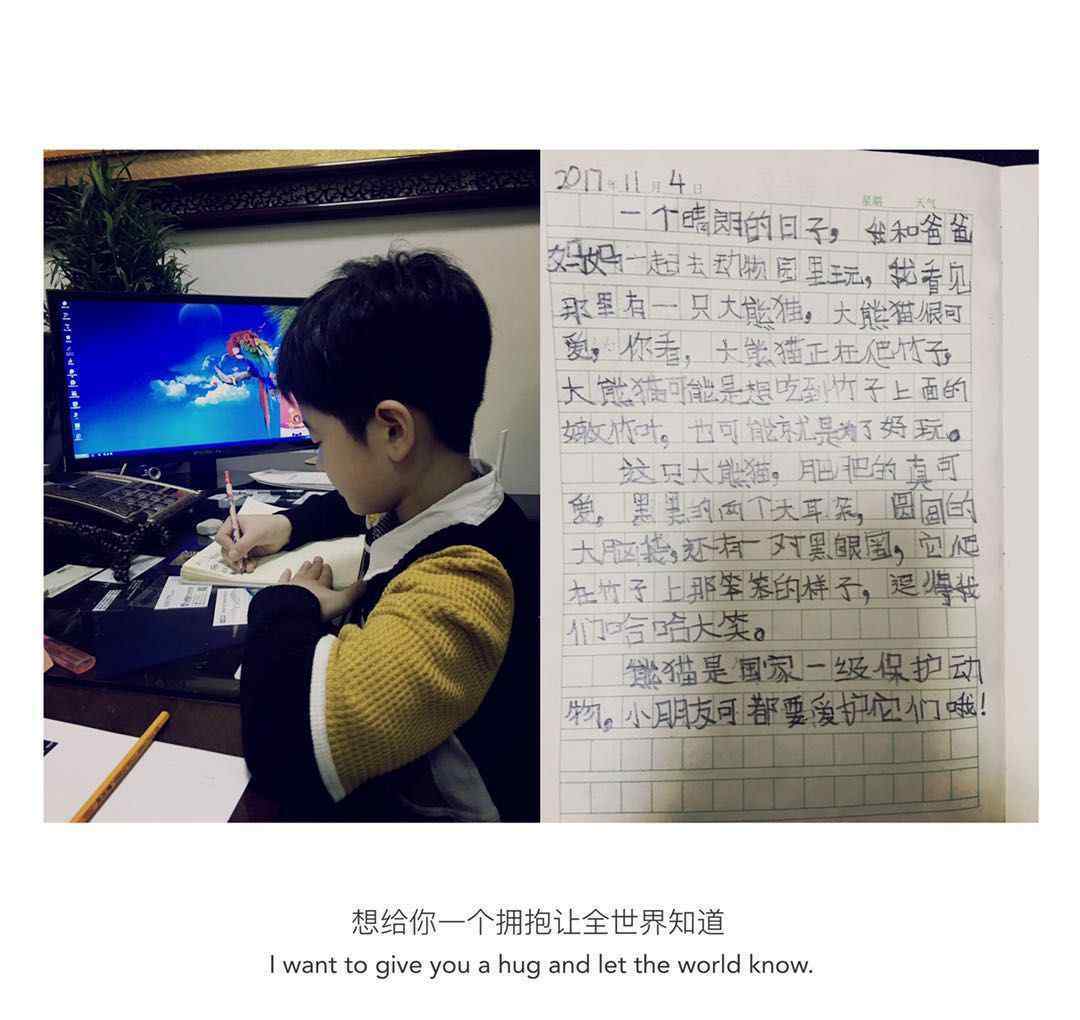 2017年11月4日
星期 天气
一个晴朗的日子，我和爸爸
妈妈一起去动物园里玩，我看见
那里有一只大熊猫，大熊猫很可
爱，你看，大熊猫正在爬竹子，
大熊猫可能是想吃到竹子上面的
嫩竹叶，也可能就是为了好玩。
这只大熊猫，肥肥的真可
爱，黑黑的两个大耳朵，圆圆的
大脑袋，还有一对黑眼圈，它爬
在竹子上那笨笨的样子，逗得我
们哈哈大笑。
熊猫是国家一级保护动
物，小朋友可都要爱护它们哦！
想给你一个拥抱让全世界知道
I want to give you a hug and let the world know.